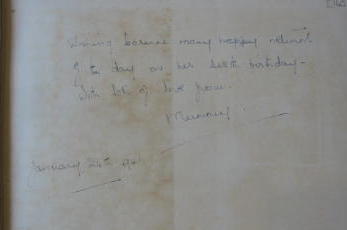 Wishing many happy returns
of the day on her birthday -
With lots of love from
Mummy.
January 24th